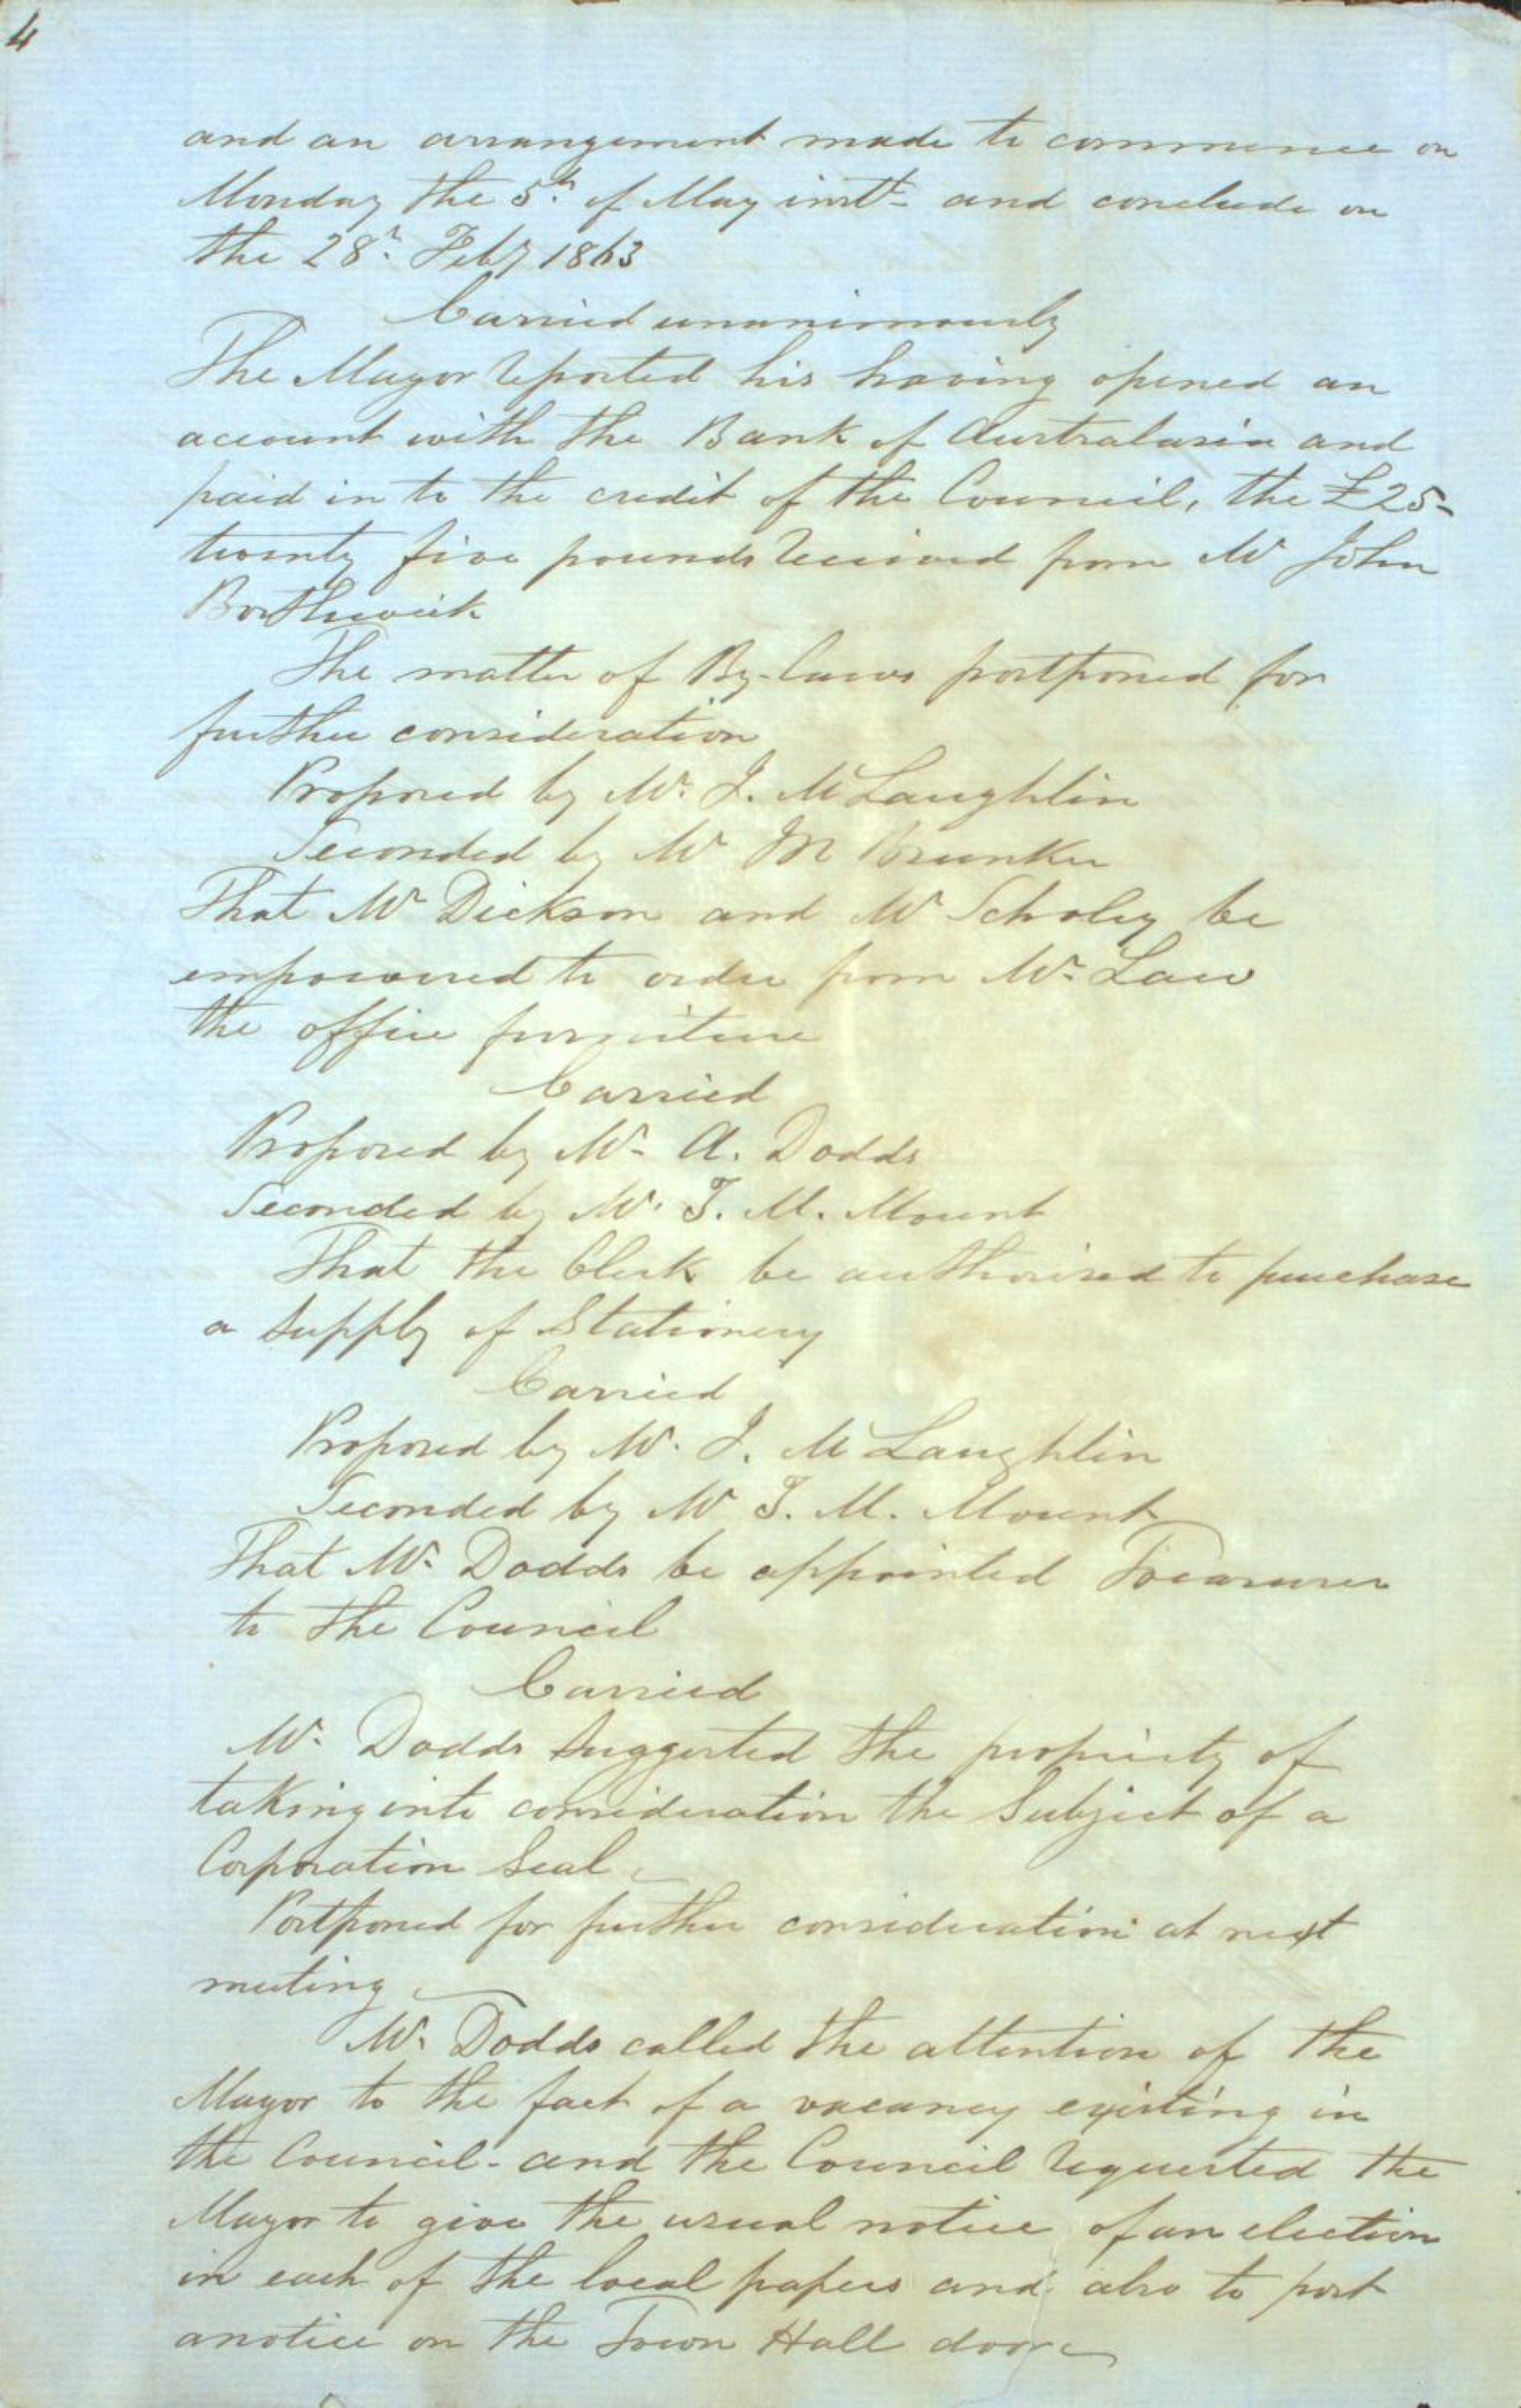 4
and an arrangement made to commence on
Monday the 5th of May inst and conclude on
the 28th Feby 1863
Carried unanimously
The Mayor reported his having opened an
account with the Bank of Australasia and
paid in to the credit of the Council, the £25-
twenty five pounds received from Mr John
Borthwick
The matter of By-laws postponed for
further consideration
Proposed by Mr. J. McLaughlin
Seconded by Mr M Brunker
That Mr Dickson and Mr Scholey be
empowered to order from Mr. Law
the office furniture
Carried
Proposed by Mr. A. Dodds
Seconded by Mr. T. M. Mount
That the Clerk be authorised to purchase
a supply of Stationery
Carried
Proposed by Mr. J. McLaughlin
Seconded by Mr T. M. Mount
That Mr. Dodds be appointed Treasurer
to the Council
Carried
Mr. Dodds suggested the propriety of
taking into consideration the subject of a
Corporation Seal
Postponed for further consideration at next
meeting
Mr. Dodds called the attention of the
Mayor to the fact of a vacancy existing in
the Council - and the Council requested the
Mayor to give the usual notice of an election
in each of the local papers and also to post
a notice on the Town Hall door